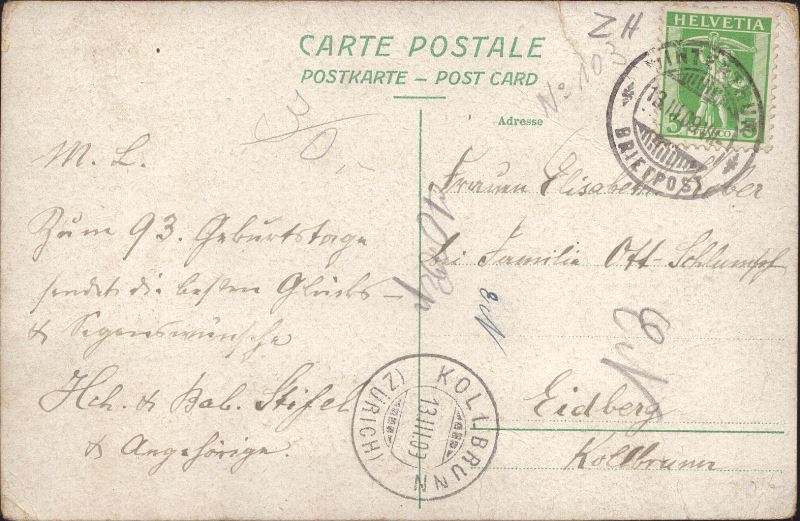 CARTE POSTALE
POSTKARTE – POST CARD
ZH
No 103
Adresse
HELVETIA
WINTERTHUR
13.III.09
BRIEFPOST
M. L.
Zum 93. Geburtstage
sendet die besten Glücks-
& Segenswünsche
Hch. & Bab. Stifel
& Angehörige.
Frauen Elisabeth
bei Familie Ott-Schlumpf
Eidberg
Kollbrunn
KOLLBRUNN
13.III.09
(ZÜRICH)